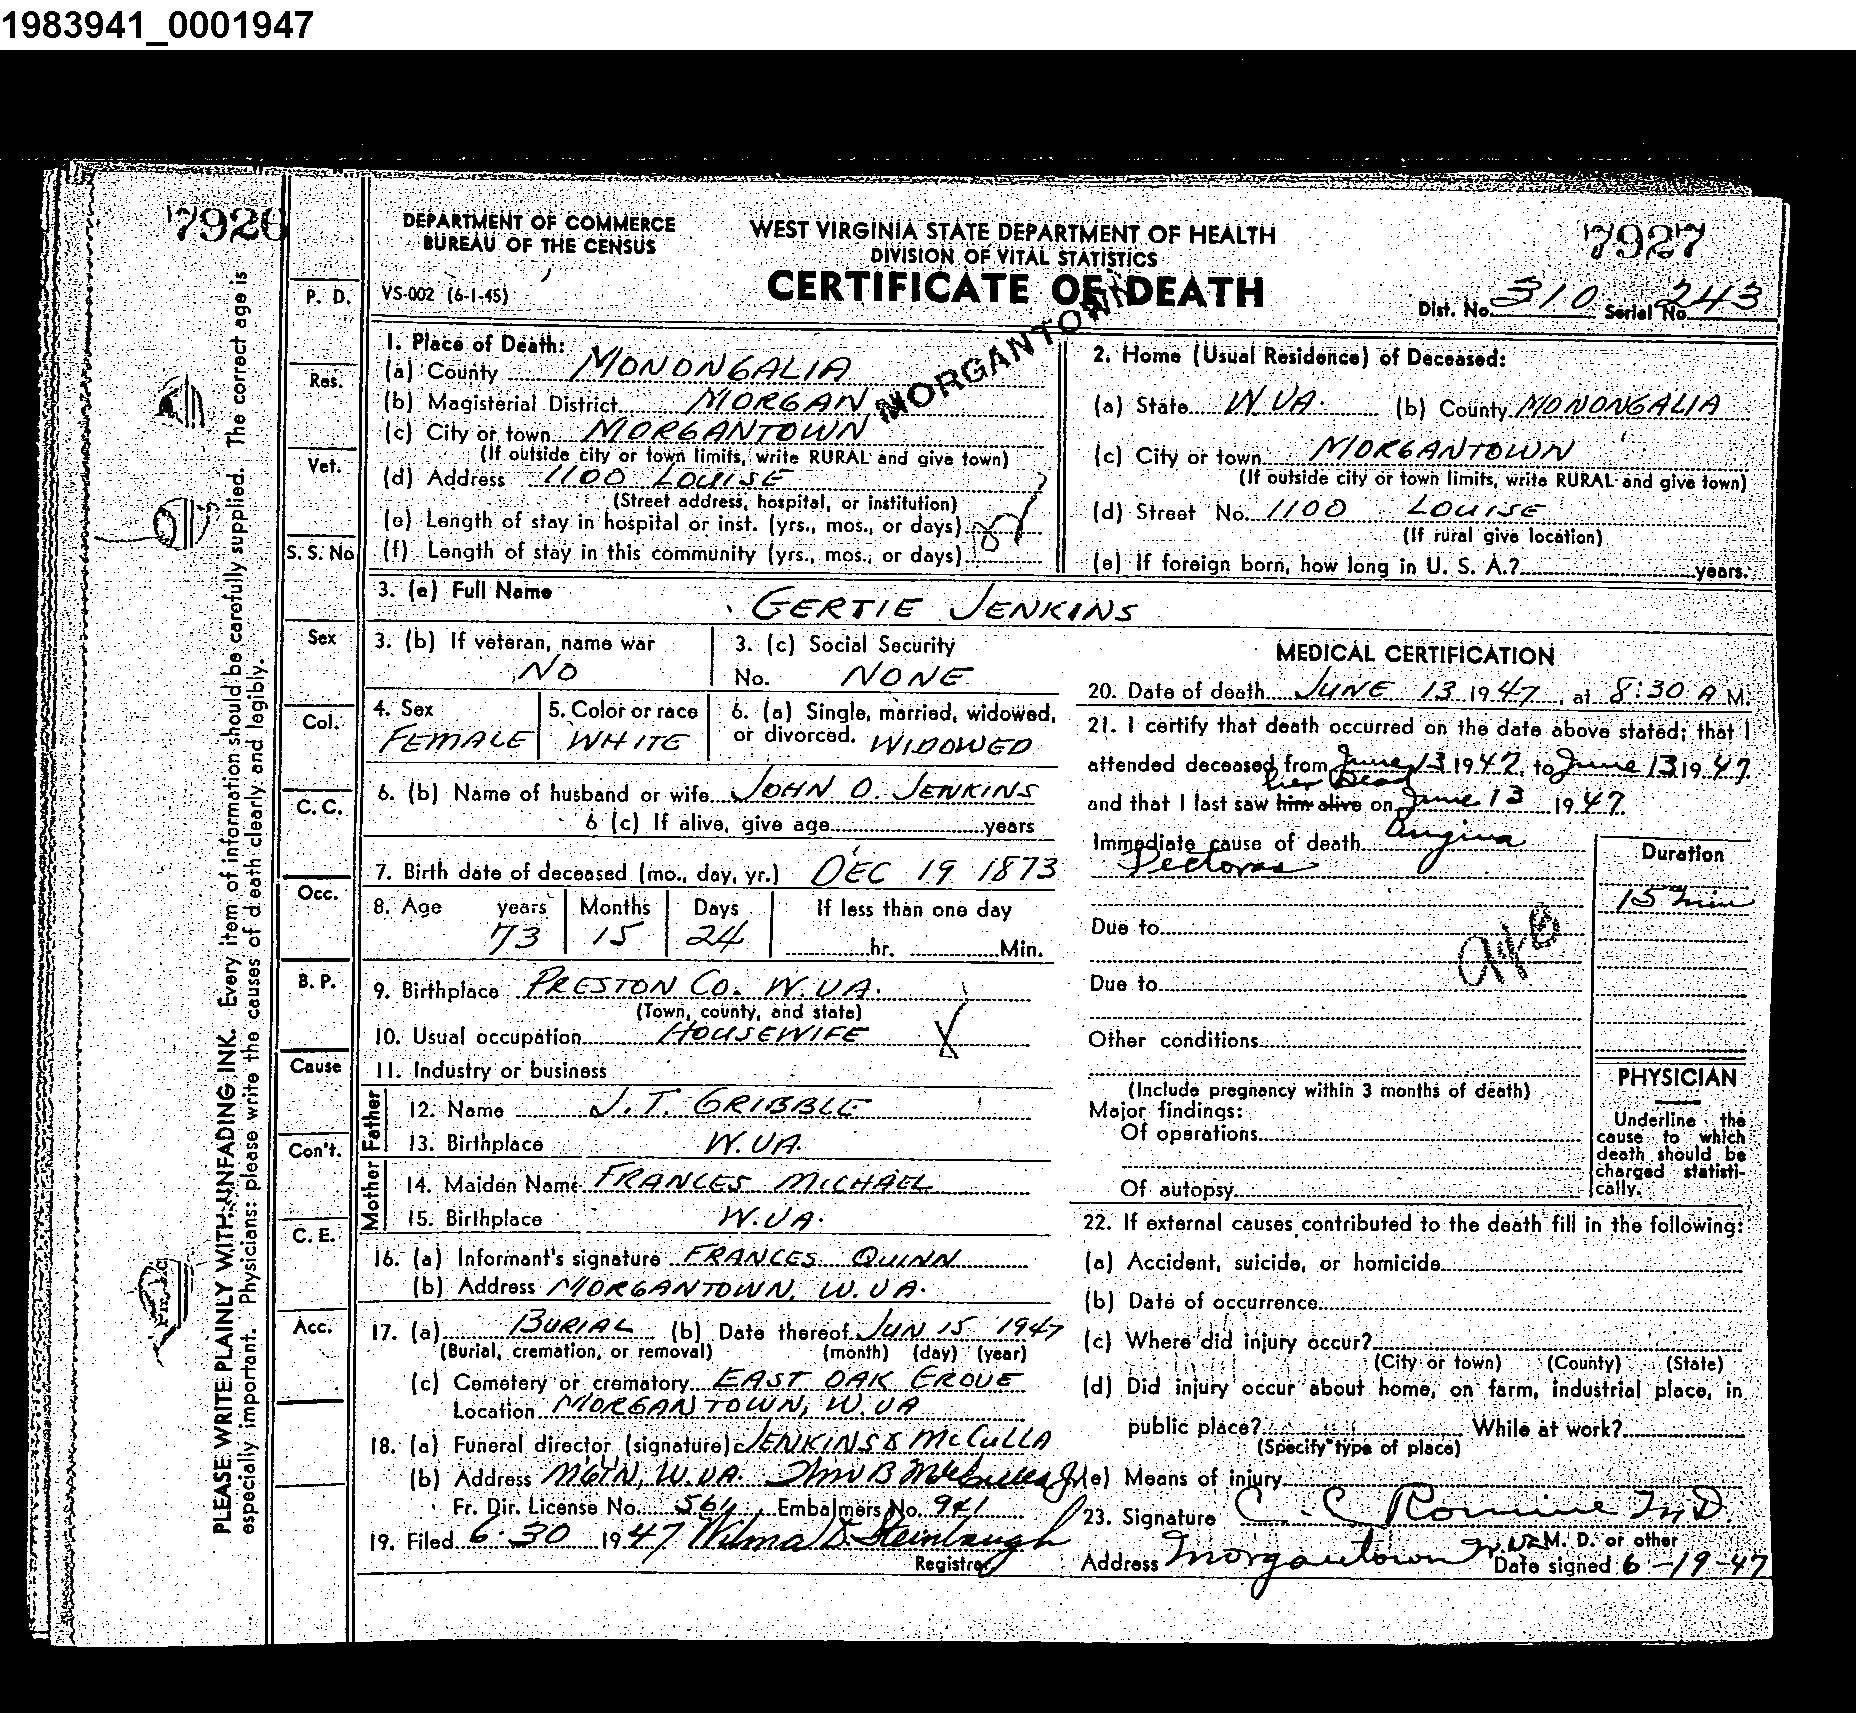 1983941_0001947
7926
7927
DEPARTMENT OF COMMERCE
BUREAU OF THE CENSUS
VS-002 (6-1-45)
WEST VIRGINIA STATE DEPARTMENT OF HEALTH
DIVISION OF VITAL STATISTICS
CERTIFICATE OF DEATH
Dist. No. 310 Serial No. 243
MORGANTOWN
PLEASE WRITE PLAINLY WITH UNFADING INK. Every item of information should be carefully supplied. The correct age is
especially important. Physicians: please write the causes of death clearly and legibly.
P. D.
Res.
Vet.
S. S. No
Sex
Col.
C. C.
Occ.
B. P.
Cause
Con't.
C. E.
Acc.
1. Place of Death:
(a) County MONONGALIA
(b) Magisterial District MORGAN
(c) City or town MORGANTOWN
(If outside city or town limits, write RURAL and give town)
(d) Address 1100 LOUISE
(Street address, hospital, or institution)
(e) Length of stay in hospital or inst. (yrs., mos., or days)
(f) Length of stay in this community (yrs., mos., or days)
2. Home (Usual Residence) of Deceased:
(a) State W.VA. (b) County MONONGALIA
(c) City or town MORGANTOWN
(If outside city or town limits, write RURAL and give town)
(d) Street No. 1100 LOUISE
(If rural give location)
(e) If foreign born, how long in U. S. A.? years.
3. (a) Full Name GERTIE JENKINS
3. (b) If veteran, name war NO
3. (c) Social Security
No. NONE
4. Sex FEMALE
5. Color or race WHITE
6. (a) Single, married, widowed,
or divorced. WIDOWED
6. (b) Name of husband or wife JOHN O. JENKINS
6 (c) If alive, give age years
7. Birth date of deceased (mo., day, yr.) DEC 19 1873
8. Age years Months Days If less than one day
73 15 24 hr. Min.
9. Birthplace PRESTON CO. W.VA.
(Town, county, and state)
10. Usual occupation HOUSEWIFE
11. Industry or business
Father
12. Name J.T. GRIBBLE
13. Birthplace W.VA.
Mother
14. Maiden Name FRANCES MICHAEL
15. Birthplace W.VA.
16. (a) Informant's signature FRANCES QUINN
(b) Address MORGANTOWN, W.VA.
17. (a) BURIAL (b) Date thereof JUN 15 1947
(Burial, cremation, or removal) (month) (day) (year)
(c) Cemetery or crematory EAST OAK GROVE
Location MORGANTOWN, W.VA
18. (a) Funeral director (signature) JENKINS & MCCULLA
(b) Address MGTN, W.VA.
Fr. Dir. License No. 564 Embalmers No. 941
19. Filed 6-30 1947 Wilma D. Steinbaugh
Registrar
MEDICAL CERTIFICATION
20. Date of death JUNE 13 1947, at 8:30 A M.
21. I certify that death occurred on the date above stated; that I
attended deceased from June 13 1947, to June 13 1947
her Dead
and that I last saw him alive on June 13 1947.
Immediate cause of death Angina
Pectoras
Duration
15 min
Due to
Due to
94B
Other conditions
(Include pregnancy within 3 months of death)
Major findings:
Of operations
Of autopsy
PHYSICIAN
Underline the
cause to which
death should be
charged statisti-
cally.
22. If external causes contributed to the death fill in the following:
(a) Accident, suicide, or homicide
(b) Date of occurrence
(c) Where did injury occur?
(City or town) (County) (State)
(d) Did injury occur about home, on farm, industrial place, in
public place? While at work?
(Specify type of place)
(e) Means of injury
23. Signature C. C. Romine M.D.
M. D. or other
Address Morgantown W.Va Date signed 6-19-47